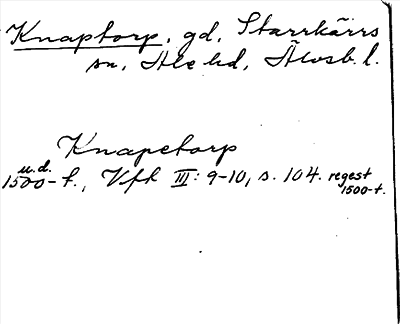 Knaptorp, gd, Starrkärrs
sn, Ale hd, Älvsb. l.
Knapetorp
u.d.
1500-t., Vfh III: 9-10, s. 104. regest
1500-t.